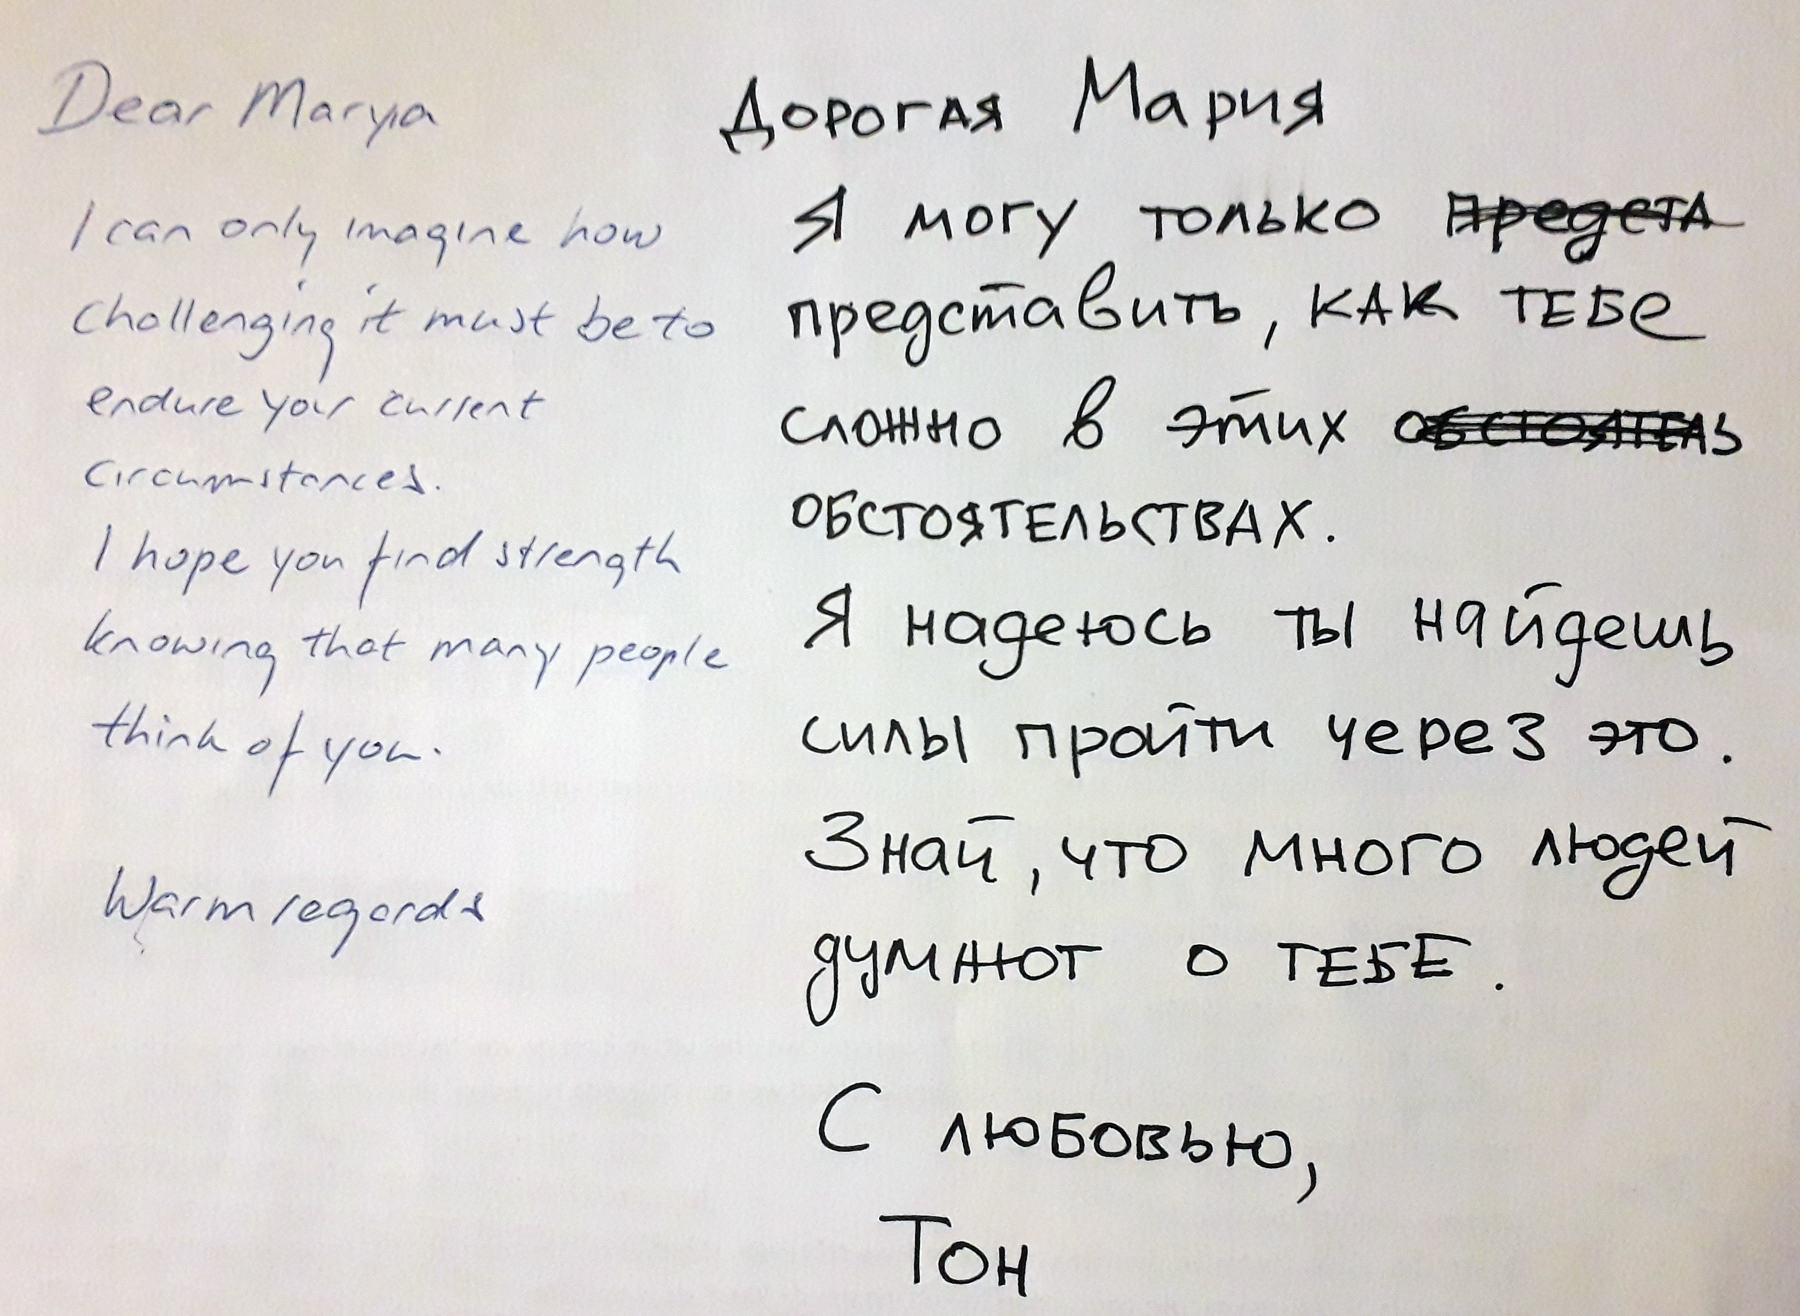 Dear Marya
I can only imagine how
challenging it must be to
endure your current
circumstances.
I hope you find strength
knowing that many people
think of you.
Warm regards
Дорогая Мария
Я могу только предста
представить, как ТЕБе
сложно в этих обстоятель
ОБСТОЯТЕЛЬСТВАХ.
Я надеюсь ты найдешь
силы пройти через это.
Знай, что много людей
думают о ТЕБЕ.
С любовью,
Тон